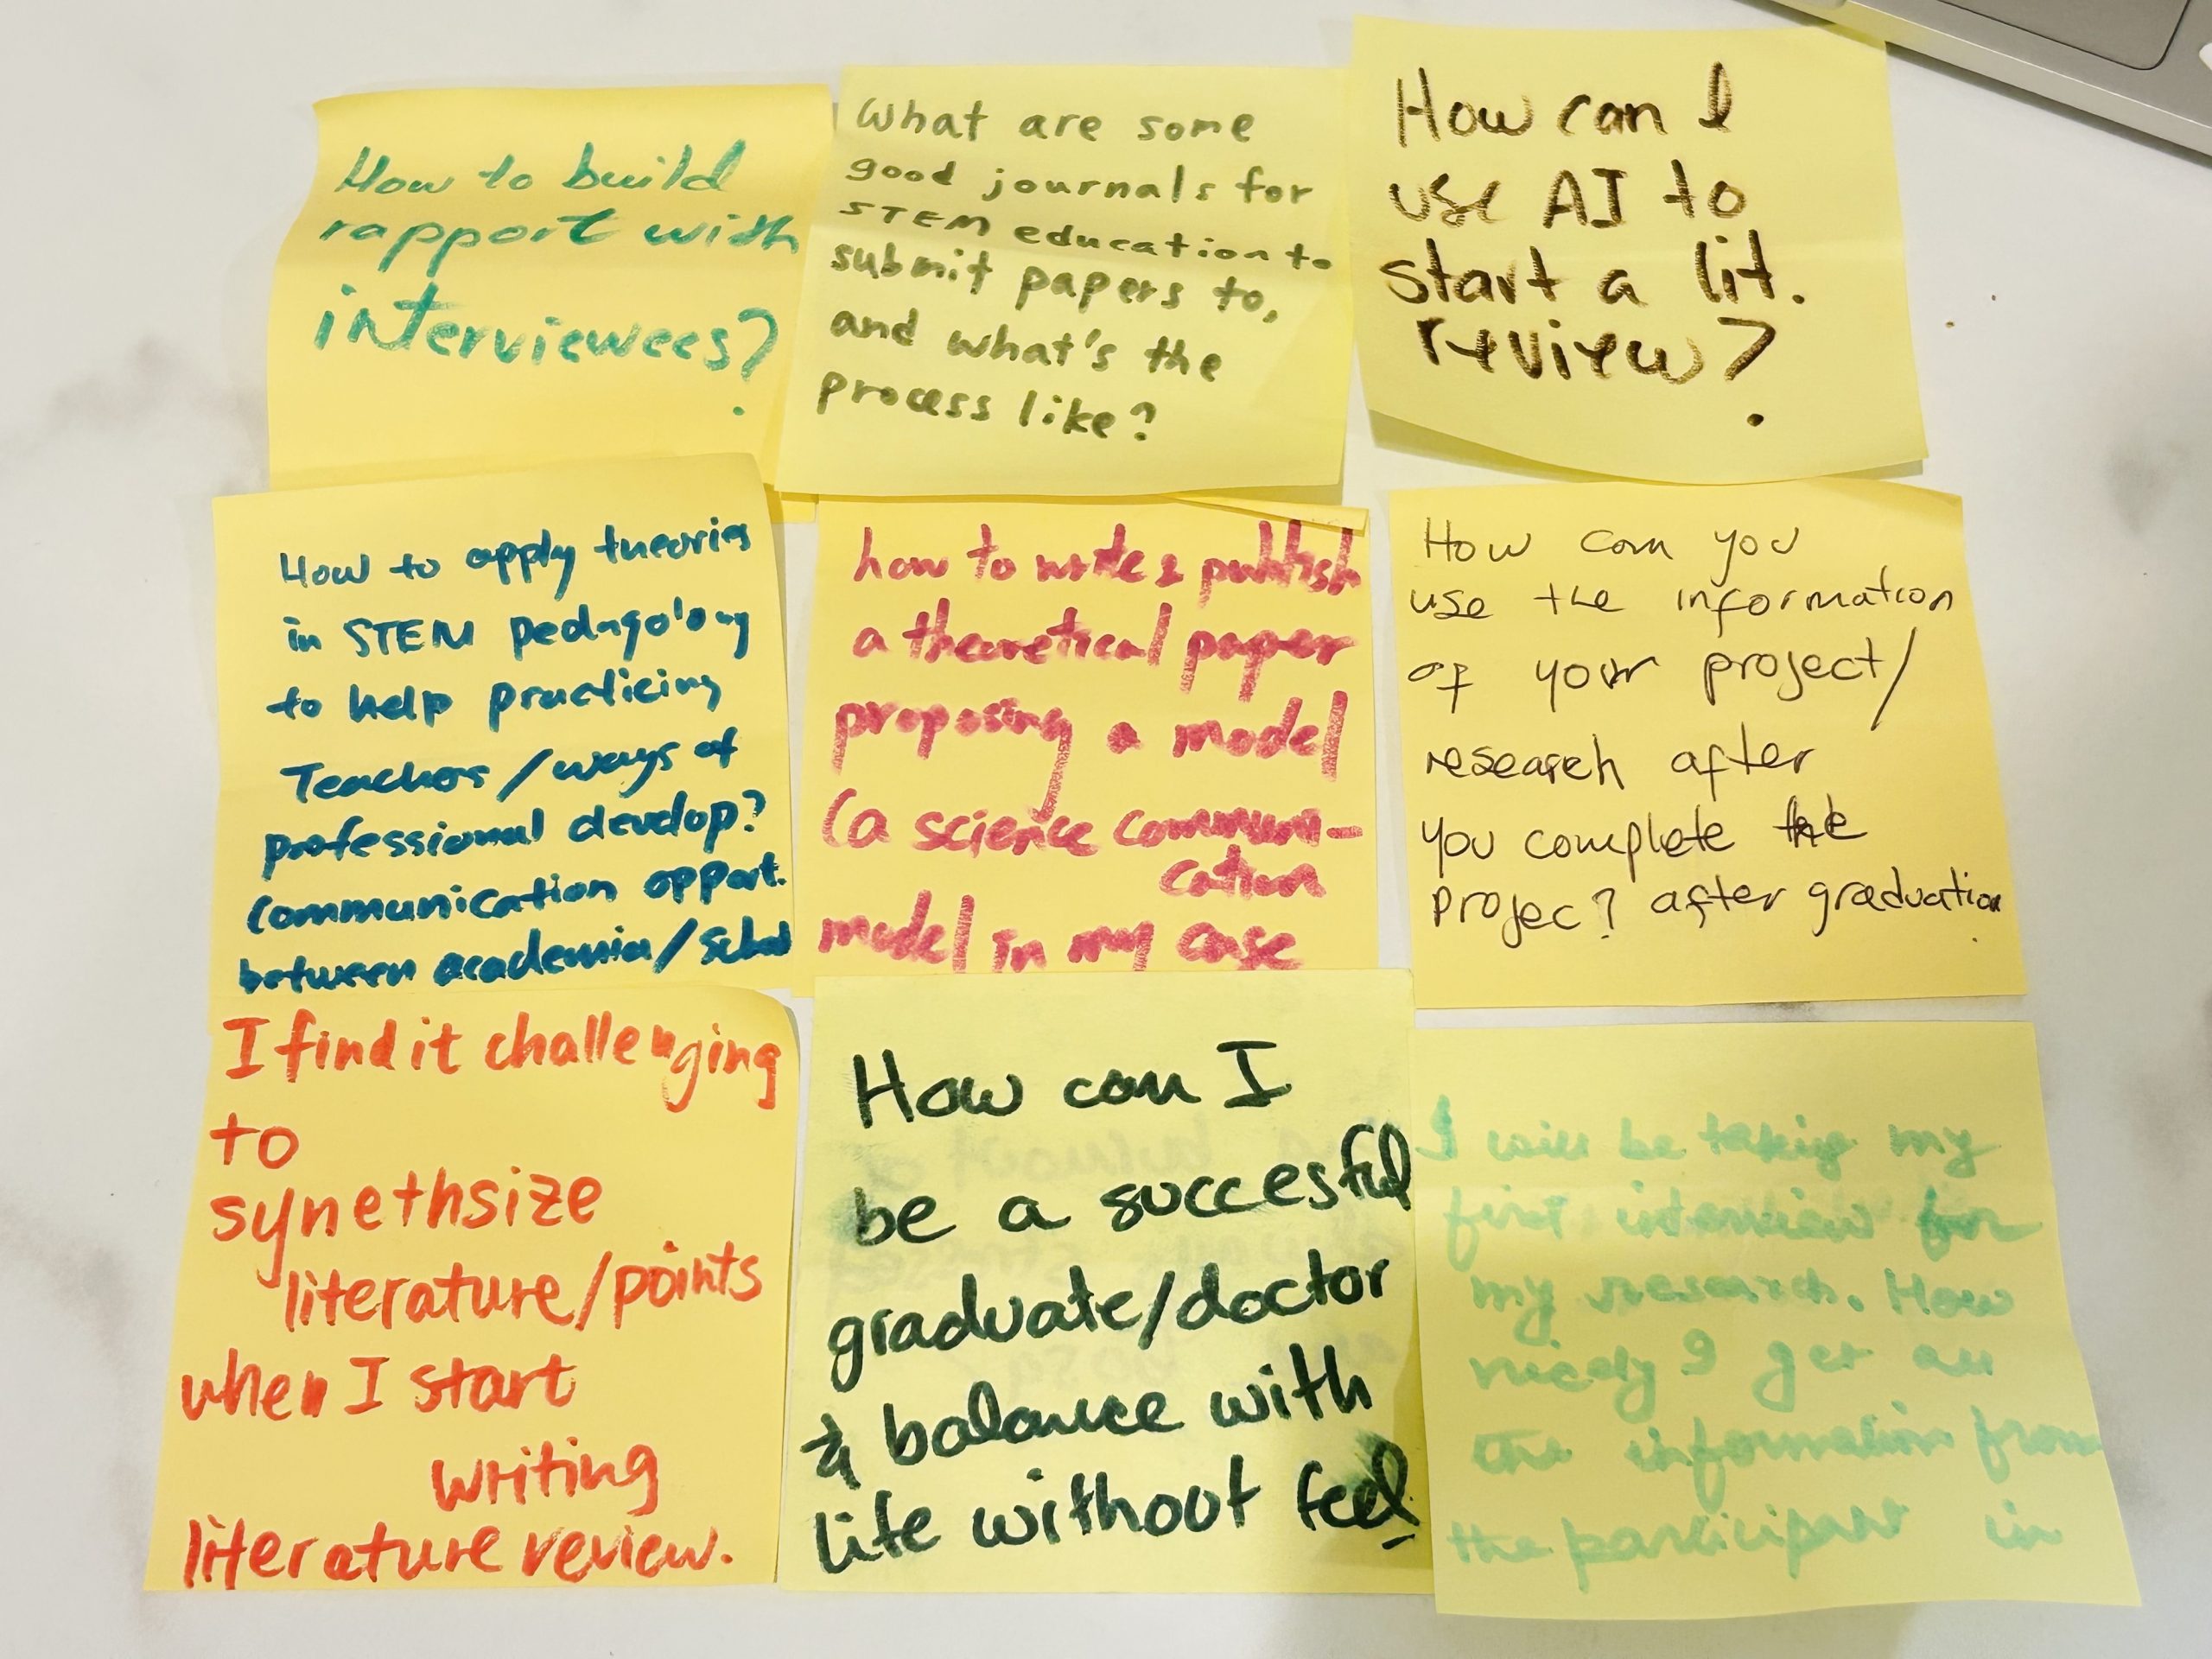 How to build
rapport with
interviewees?
What are some
good journals for
STEM education to
submit papers to,
and what's the
process like?
How can I
use AI to
start a lit.
review?
How to apply theories
in STEM pedago'ogy
to help practicing
Teachers/ways of
professional develop?
Communication opport.
between academia/school
how to write & publish
a theoretical paper
proposing a model
(a science communi-
cation
model in my case
How can you
use the information
of your project/
research after
you complete the
projec? after graduation
I find it challenging
to
synethsize
literature/points
when I start
writing
literature review.
How can I
be a succesful
graduate/doctor
& balance with
life without feel
I will be taking my
first interview for
my research. How
nicely I get all
the information from
the participant in